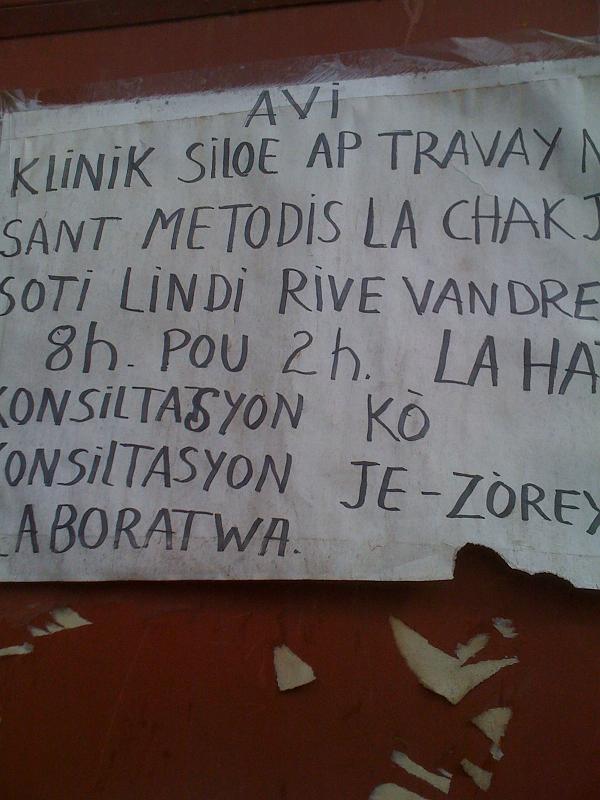 AVi
KLiNiK SiLOE AP TRAVAY N
SANT METODiS LA CHAK J
SOTi LiNDi RiVE VANDRE
8h. POU 2h. LA HA
KONSiLTASYON KÒ
KONSiLTASYON JE-ZÒREY
LABORATWA.